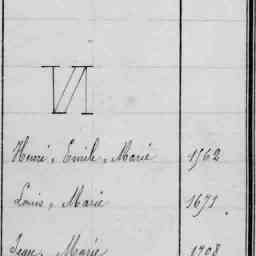 VI
Henri, Emile, Marie 1562
Louis, Marie 1671
Jean, Marie 1708